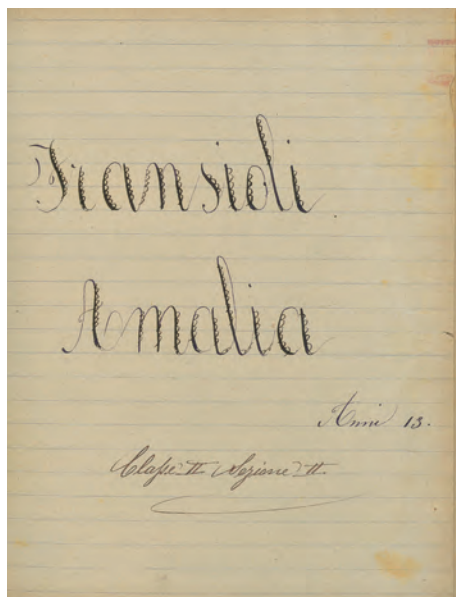 Fransioli
Amalia
Anni 13.
Classe II Sezione II